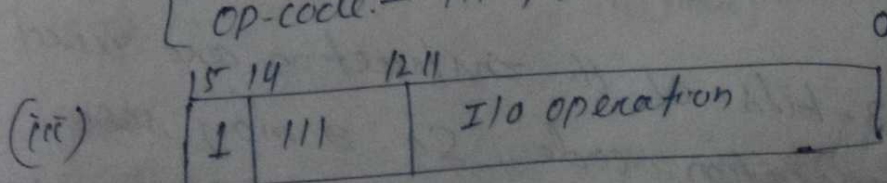 OP-code.
15 14 12 11 0
(iii) 1 111 I/O operation